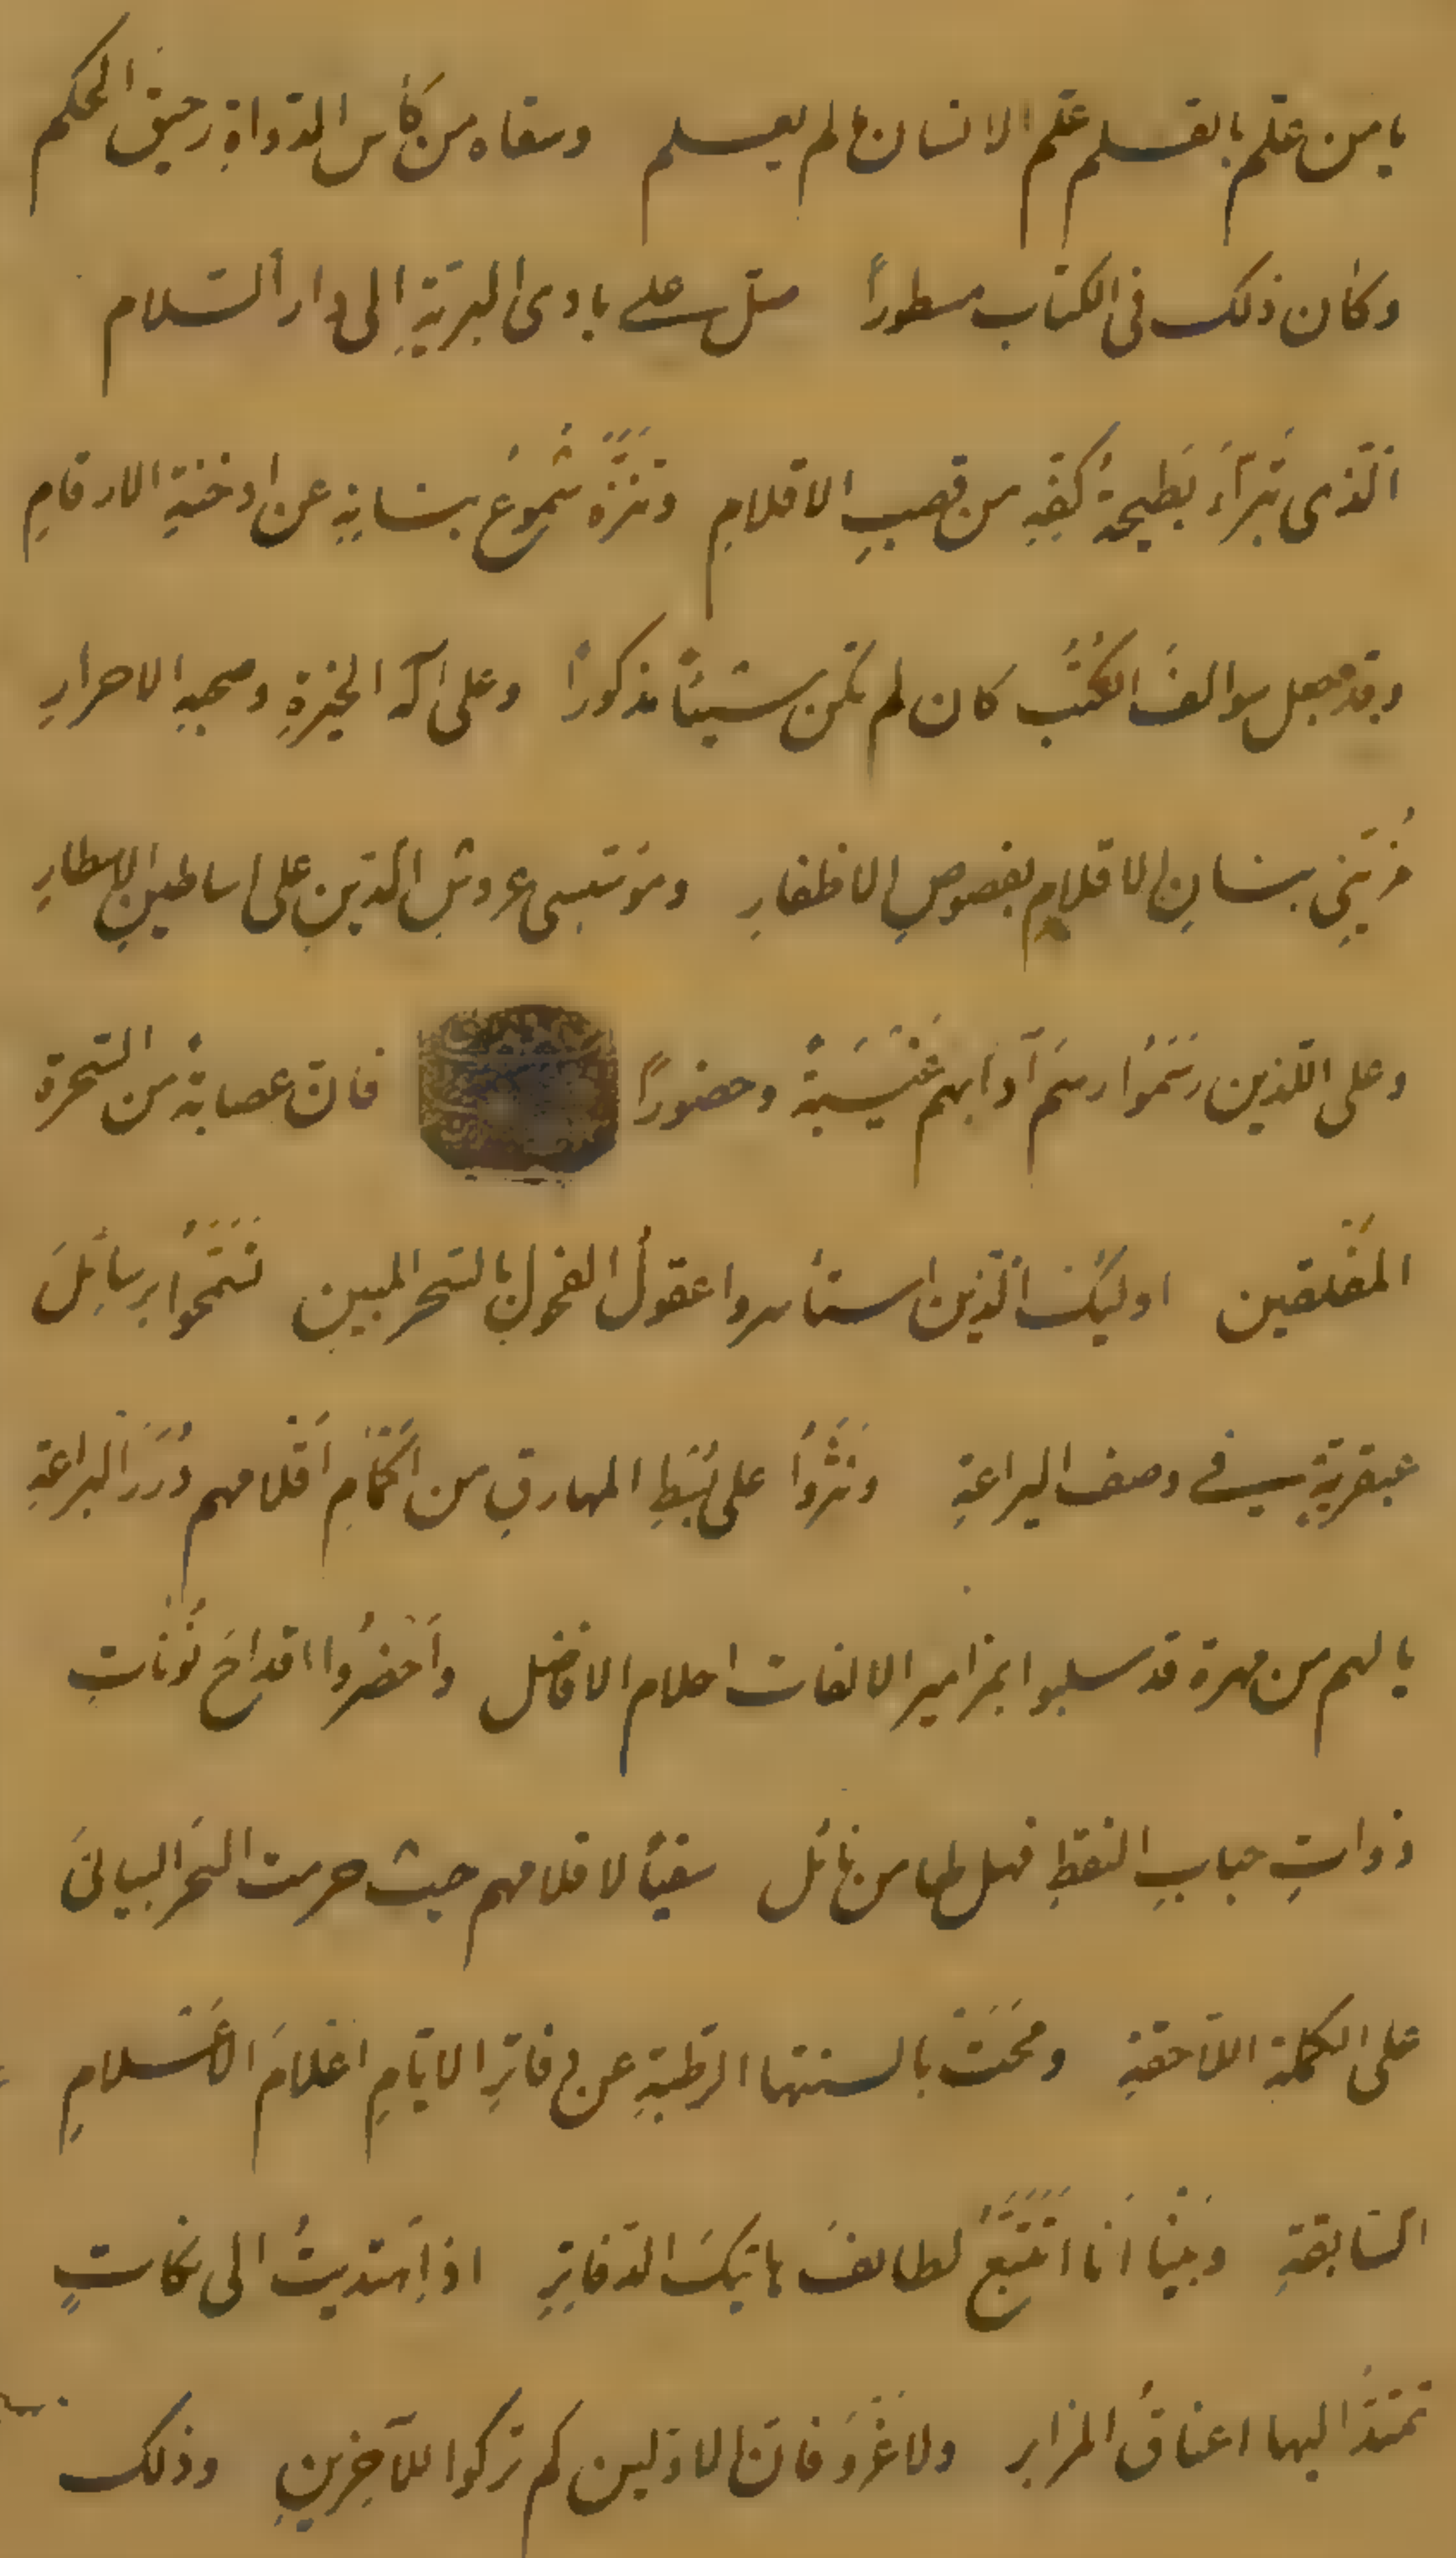 يا من علّم بالقلم علّم الانسان ما لم يعلم وسقاه من كأس الدّواة رحيق الحكم
وكان ذلك فى الكتاب مسطوراً صلّ على هادى البريّةِ الى دار السّلام
الّذى تَبَرّأَ بَطيحةُ كفّهِ من قصبِ الاقلامِ وتَنَزَّهَ شموعُ بنانهِ عن ادخنةِ الارقامِ
وقد جعل سوالفَ الكُتُبِ كان لم تكن شيئاً مذكوراً وعلى آله الخيرةِ وصحبهِ الاحرارِ
مُزيّنى بنانِ الاقلامِ بفصوصِ الاظفارِ ومؤسّسى عروشِ الدّينِ على اساطينِ الاسطارِ
وعلى الّذين رسَمُوا رسمَ آدابهم غَيْبَةً وحضوراً فانّ عصابةً من السّحرة
المفْلقين اولئك الّذين استأسروا عقولُ الفحولِ بالسّحر المبين نَمَّقُوا برسائِلَ
عبقريّةٍ فى وصف اليراعةِ ونَثَرُوا على بُسُطِ المهارقِ من اكمَامِ اَقْلامهم دُرَرَ البراعةِ
يا لهم من مهرة قد سلبوا بمزامير الالفات احلام الافاضل واَحْضَرُوا اقداحَ نُونَاتٍ
ذواتِ حبابِ النقطِ فهل لها من نائل سقياً لاقلامهم حيث حرمت السّحرَ البيانىَ
على الكلمة اللاّحقةِ ومَحَتْ بالسنتها الرّطبةِ عن دفاترِ الايّامِ اعْلامَ الاَسْلامِ
السّابقةِ وبَيْنَا اَنا اتَتَبَّعُ لطائفَ هاتيكَ الدّفاترِ اذ اِهتديتُ الى نكاتٍ
تمتدّ اليها اعناقُ المزابر ولا غَرْوَ فانّ الاوّلين كم تركوا للآخِرينِ وذلك